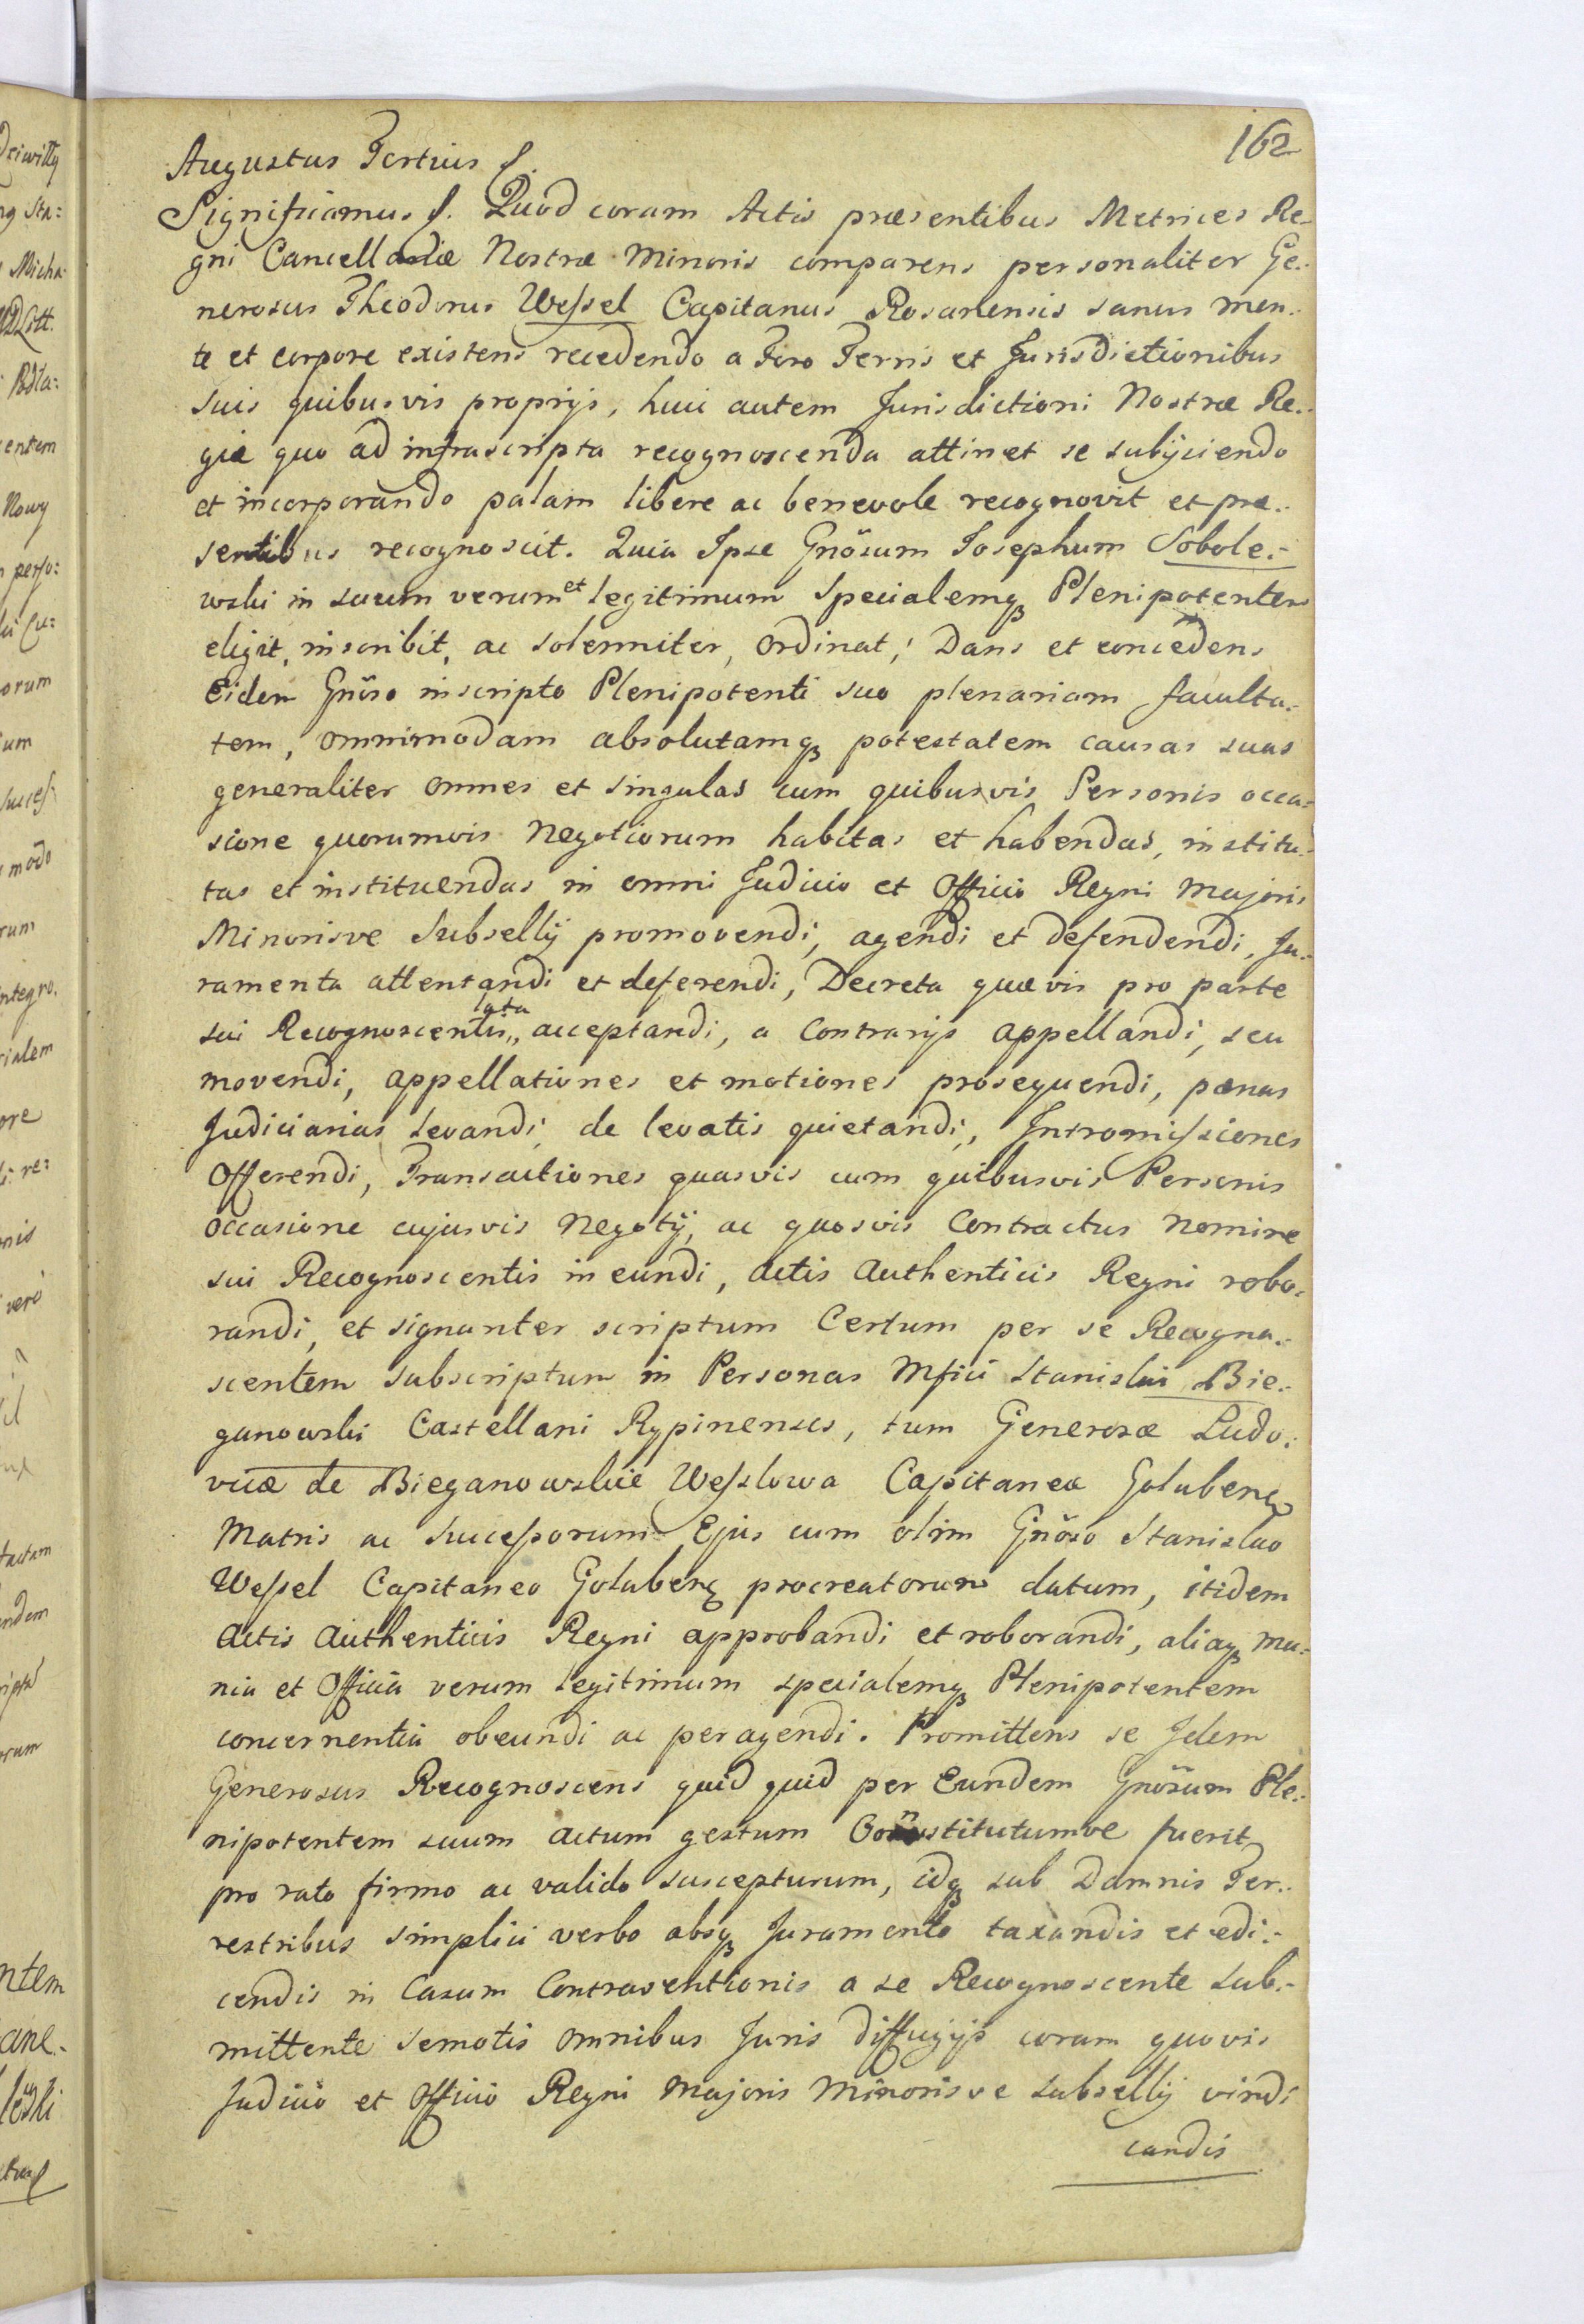 162
Augustus Tertius &.
Significamus &. Quod coram Actis præsentibus Metrices Re-
gni Cancellariæ Nostræ Minoris comparens personaliter Ge-
nerosus Theodorus Wessel Capitanus Rosanensis sanus men-
te et corpore existens recedendo a Foro Terris et Jurisdictionibus
suis quibusvis proprijs, huic autem Jurisdictioni Nostræ Re-
giæ quo ad infrascripta recognoscenda attinet se subijciendo
et incorporando palam libere ac benevole recognovit et præ-
sentibus recognoscit. Quia Ipse Gnösum Josephum Sobole-
wski in suum verum et legitimum Specialemq Plenipotentem
eligit, inscribit, ac solenniter, ordinat; Dans et concedens
Eidem Gnöso inscripto Plenipotenti suo plenariam faculta-
tem, omnimodam absolutamq potestatem causas suas
generaliter omnes et singulas cum quibusvis Personis occa-
sione quorumvis Negotiorum habitas et habendas, institu-
tas et instituendas in omni Judicio et Officio Regni Majoris
Minorisve Subsellij promovendi, agendi et defendendi, Ju-
ramenta attentandi et deferendi, Decreta quævis pro parte
sui Recognoscentis lata acceptandi, a Contrarijs appellandi, seu
movendi, appellationes et motiones prosequendi, pænas
Judiciarias levandi, de levatis quietandi, Intromissiones
Offerendi, Transactiones quasvis cum quibusvis Personis
Occasione cujusvis Negotij, ac quosvis Contractus Nomine
sui Recognoscentis ineundi, Actis Authenticis Regni robo-
randi, et signanter scriptum Certum per se Recogno-
scentem subscriptum in Personas Mfici Stanislai Bie-
ganowski Castellani Rypinensis, tum Generosæ Ludo-
vicæ de Bieganowskie Wesslowa Capitaneæ Golubens
Matris ac Successorum Ejus cum olim Gnöso Stanislao
Wessel Capitaneo Golubens procreatorum datum, itidem
Actis Authenticis Regni approbandi et roborandi, aliaq mu-
nia et Officia verum legitimum specialemq Plenipotentem
concernentia obeundi ac peragendi. Promittens se Idem
Generosus Recognoscens quid quid per Eundem Gnösum Ple-
nipotentem suum actum gestum Constitutumve fuerit,
pro rato firmo ac valido suscepturum, idq sub Damnis Ter-
restribus simplici verbo absq Juramento taxandis et edi-
cendis in Casum Contraventionis a se Recognoscente sub-
mittente semotis omnibus Juris diffugijs coram quovis
Judicio et Officio Regni Majoris Minorisve subsellij vindi
candis